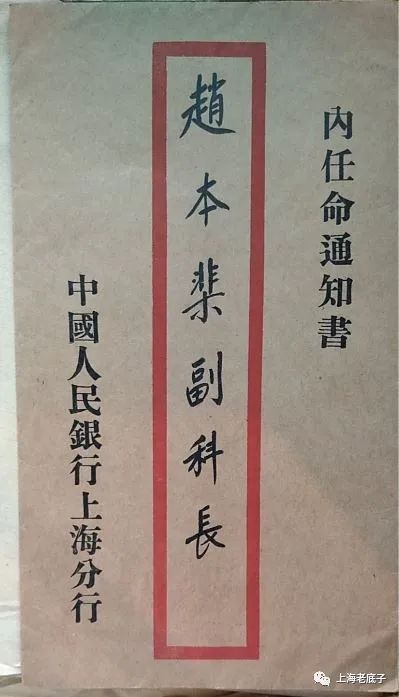 內任命通知書
趙本棐副科長
中國人民銀行上海分行
上海老底子